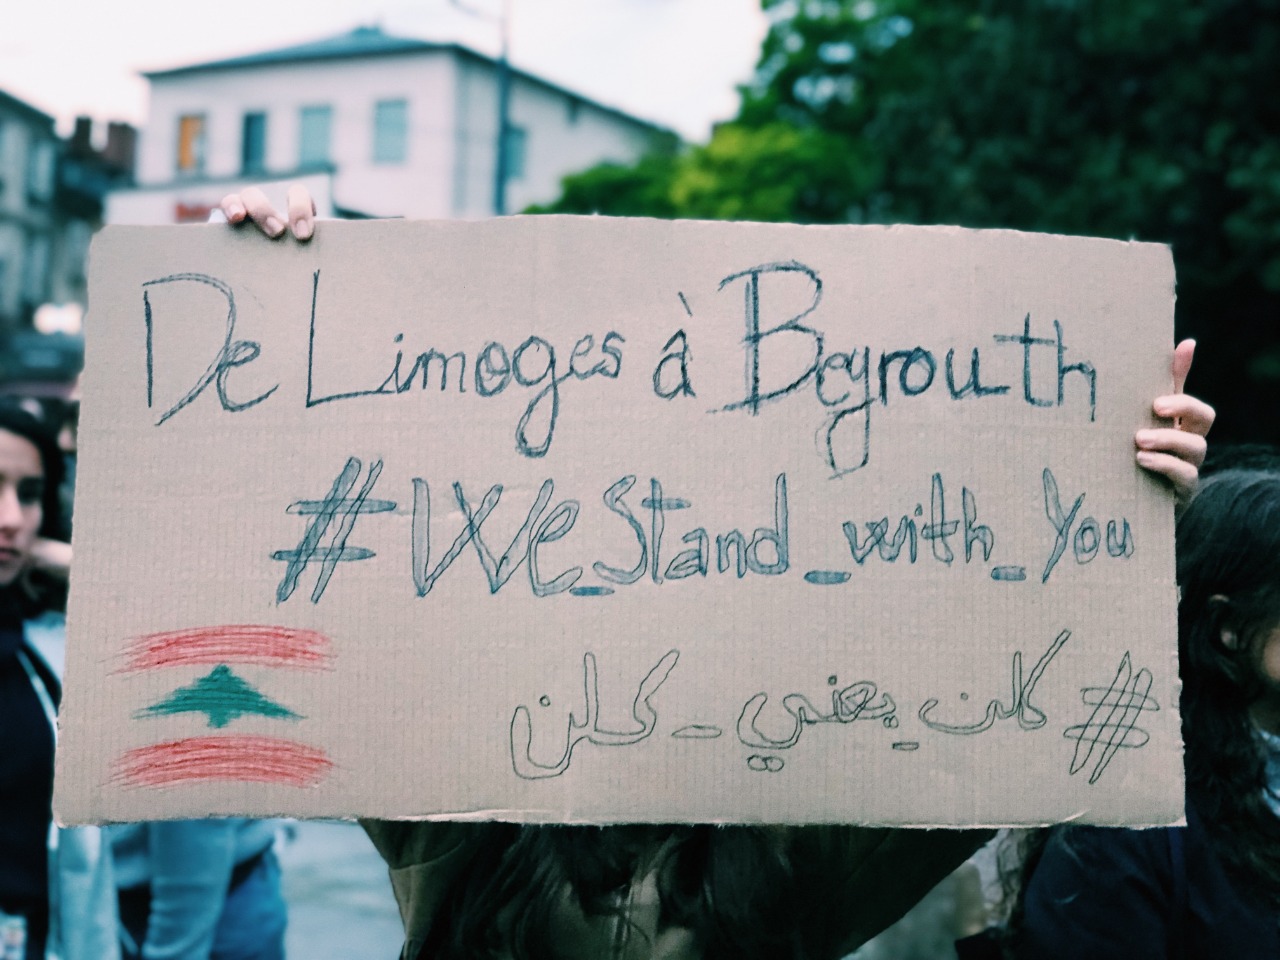 De Limoges à Beyrouth
#We_Stand_with_You
#كلن_يعني_كلن